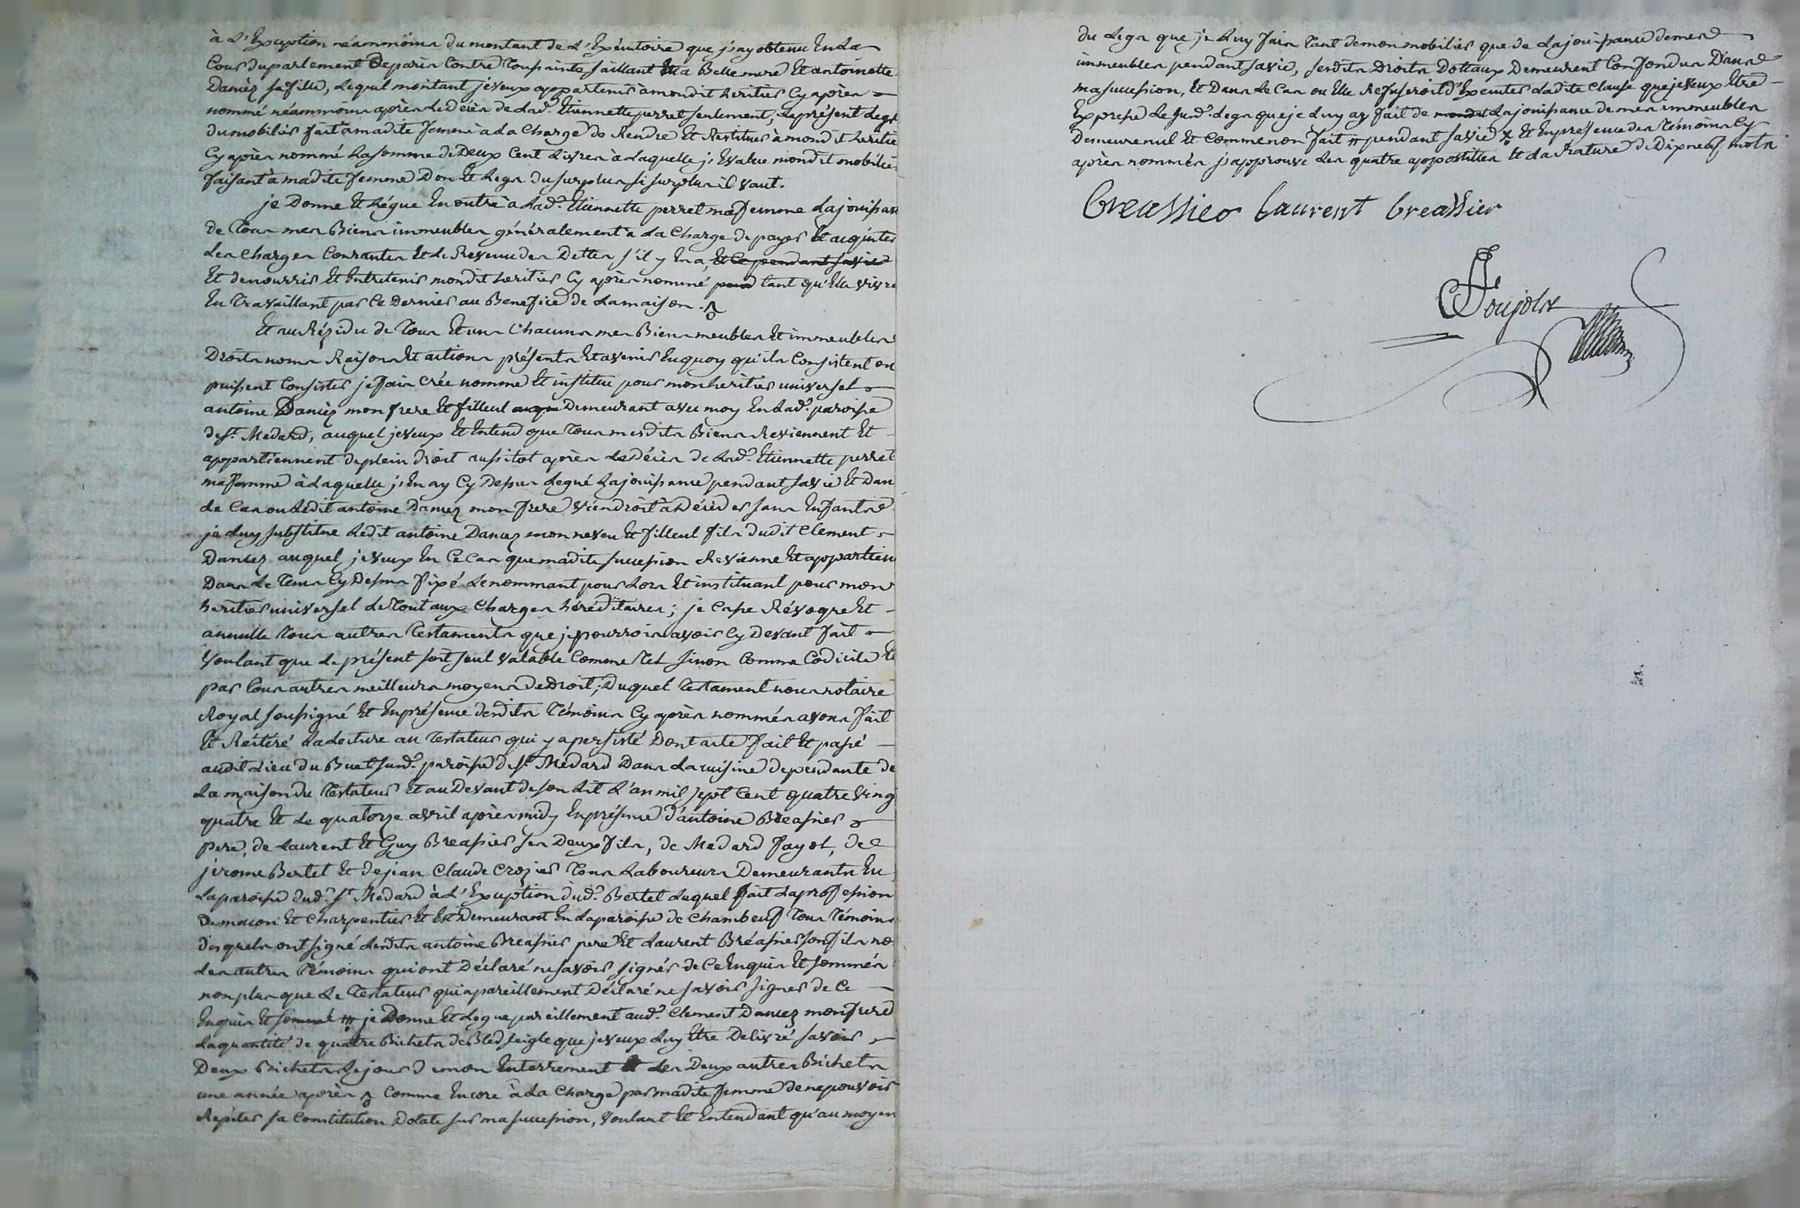 à L'Exception néammoins du montant de L'Exécutoire que j'ay obtenu En La
Cour du parlement De paris Contre Toussainte faillant sa Belle mere Et antoinette
Daniez sa fille, Lequel montant je veux appartenir à mondit heritier Cy après
nommé néammoins après Le Décès de Lad.e Etiennette perret seulement, Le présent Legs
du mobilier fait à madite femme a La Charge de Rendre Et Restituer à mondit heritier
Cy après nommé La somme de Deux Cent Livres à Laquelle j'Evalue mondit mobilier
faisant à madite femme Don Et Legs du surplus si surplus il vaut.
je Donne Et Légue En outre à Lad.e Etiennette perret ma femme La jouissan
de Tous mes Biens immeubles généralement à La Charge de payer Et acquiter
Les Charges Courantes Et Le Revenu des Dettes s'il y En a Et Ce pendant sa vie
Et de nourrir Et Entretenir mondit heritier Cy après nommé pend tant qu'Elle vivra
En Travaillant par Ce Dernier au Benefice de La maison.
Et au Résidu de Tous Et uns Chacuns mes Biens meubles Et immeubles
Droits noms Raisons Et actions présents Et avenir En quoy qu'ils Consistent ou
puissent Consister je fais Crée nomme Et institue pour mon heritier universel
antoine Daniez mon frere Et filleul Demeurant avec moy En Lad.e paroisse
de St. Medard, auquel je veux Et Entend que Tous mesdits Biens Reviennent Et
appartiennent de plein Droit aussitot après Le Décès de Lad.e Etiennette perret
ma femme à Laquelle j'En ay Cy Dessus Legué La jouissance pendant sa vie Et Dans
Le Cas ou Ledit antoine Daniez mon frere Viendroit à Décéder sans Enfants
je Luy substitue Ledit antoine Daniez mon neveu Et filleul fils dudit Clement
Daniez auquel je veux En Ce Cas que madite succession Revienne Et appartien
Dans Le Tems Cy Dessus fixé Le nommant pour Lors Et instituant pour mon
heritier universel Le Tout aux Charges héréditaires; je Casse Révoque Et
annulle Tous autres Testaments que je pourrois avoir Cy Devant fait
Voulant que Le présent soit seul Valable Comme Tel sinon Comme Codicile Et
par Tous autres meilleurs moyens de Droit; Duquel Testament nous notaire
Royal soussigné Et En présence desdits Témoins Cy après nommés avons fait
Et Réitéré La Lecture au Testateur qui y a persisté Dont acte fait Et passé
audit Lieu du Buet susd. paroisse de St. Medard Dans La cuisine dependante de
La maison du Testateur Et au Devant de son Lit L'an mil sept Cent quatre Ving
quatre Et Le quatorze avril après midy En présence d'antoine Breassier
pere, de Laurent Et Guy Breassier ses Deux fils, de Medard fayot, de
jerome Bertel Et de jean Claude Crozier Tous Laboureurs Demeurants En
La paroisse dud. St. Medard à L'Exception dud. Bertel Lequel fait La profession
De macon Et Charpentier Et Demeurant En La paroisse de Chambeuf Tous Témoins
Desquels ont signé Lesdits antoine Breassier pere Et Laurent Bréassier son fils no
Les autres Témoins qui ont Déclaré ne savoir signer de Ce Enquis Et sommés
non plus que Le Testateur qui a pareillement Déclaré ne savoir signer de Ce
Enquis Et sommé # je Donne Et Legue pareillement aud. Clement Daniez mon frere
La quantité de quatre Bichets de Bled seigle que je veux Luy Etre Delivré savoir
Deux Bichets Le jour de mon Enterrement Et Les Deux autres Bichets
une année après Comme Encore à La Charge par madite femme de ne pouvoir
Repéter sa Constitution Dotale sur ma succession, Voulant Et Entendant qu'au moyen
du Legs que je Luy fais Tant de mon mobilier que de La jouissance de mes
immeubles pendant sa vie, sesdits Droits Dottaux Demeurent Confondus Dans
ma succession, Et Dans Le Cas ou Elle Refuseroit d'Executer Ladite Clause que je veux Etre
Expresse Le susd. Legs que je Luy ay fait de La jouissance de mes immeubles
Demeure nul Et Comme non fait # pendant sa vie # Et En présence des Témoins Cy
après nommés j'approuve Les quatre appostilles Et La Rature de Dix neuf mots
Breassier Laurent Breassier
Poujolx